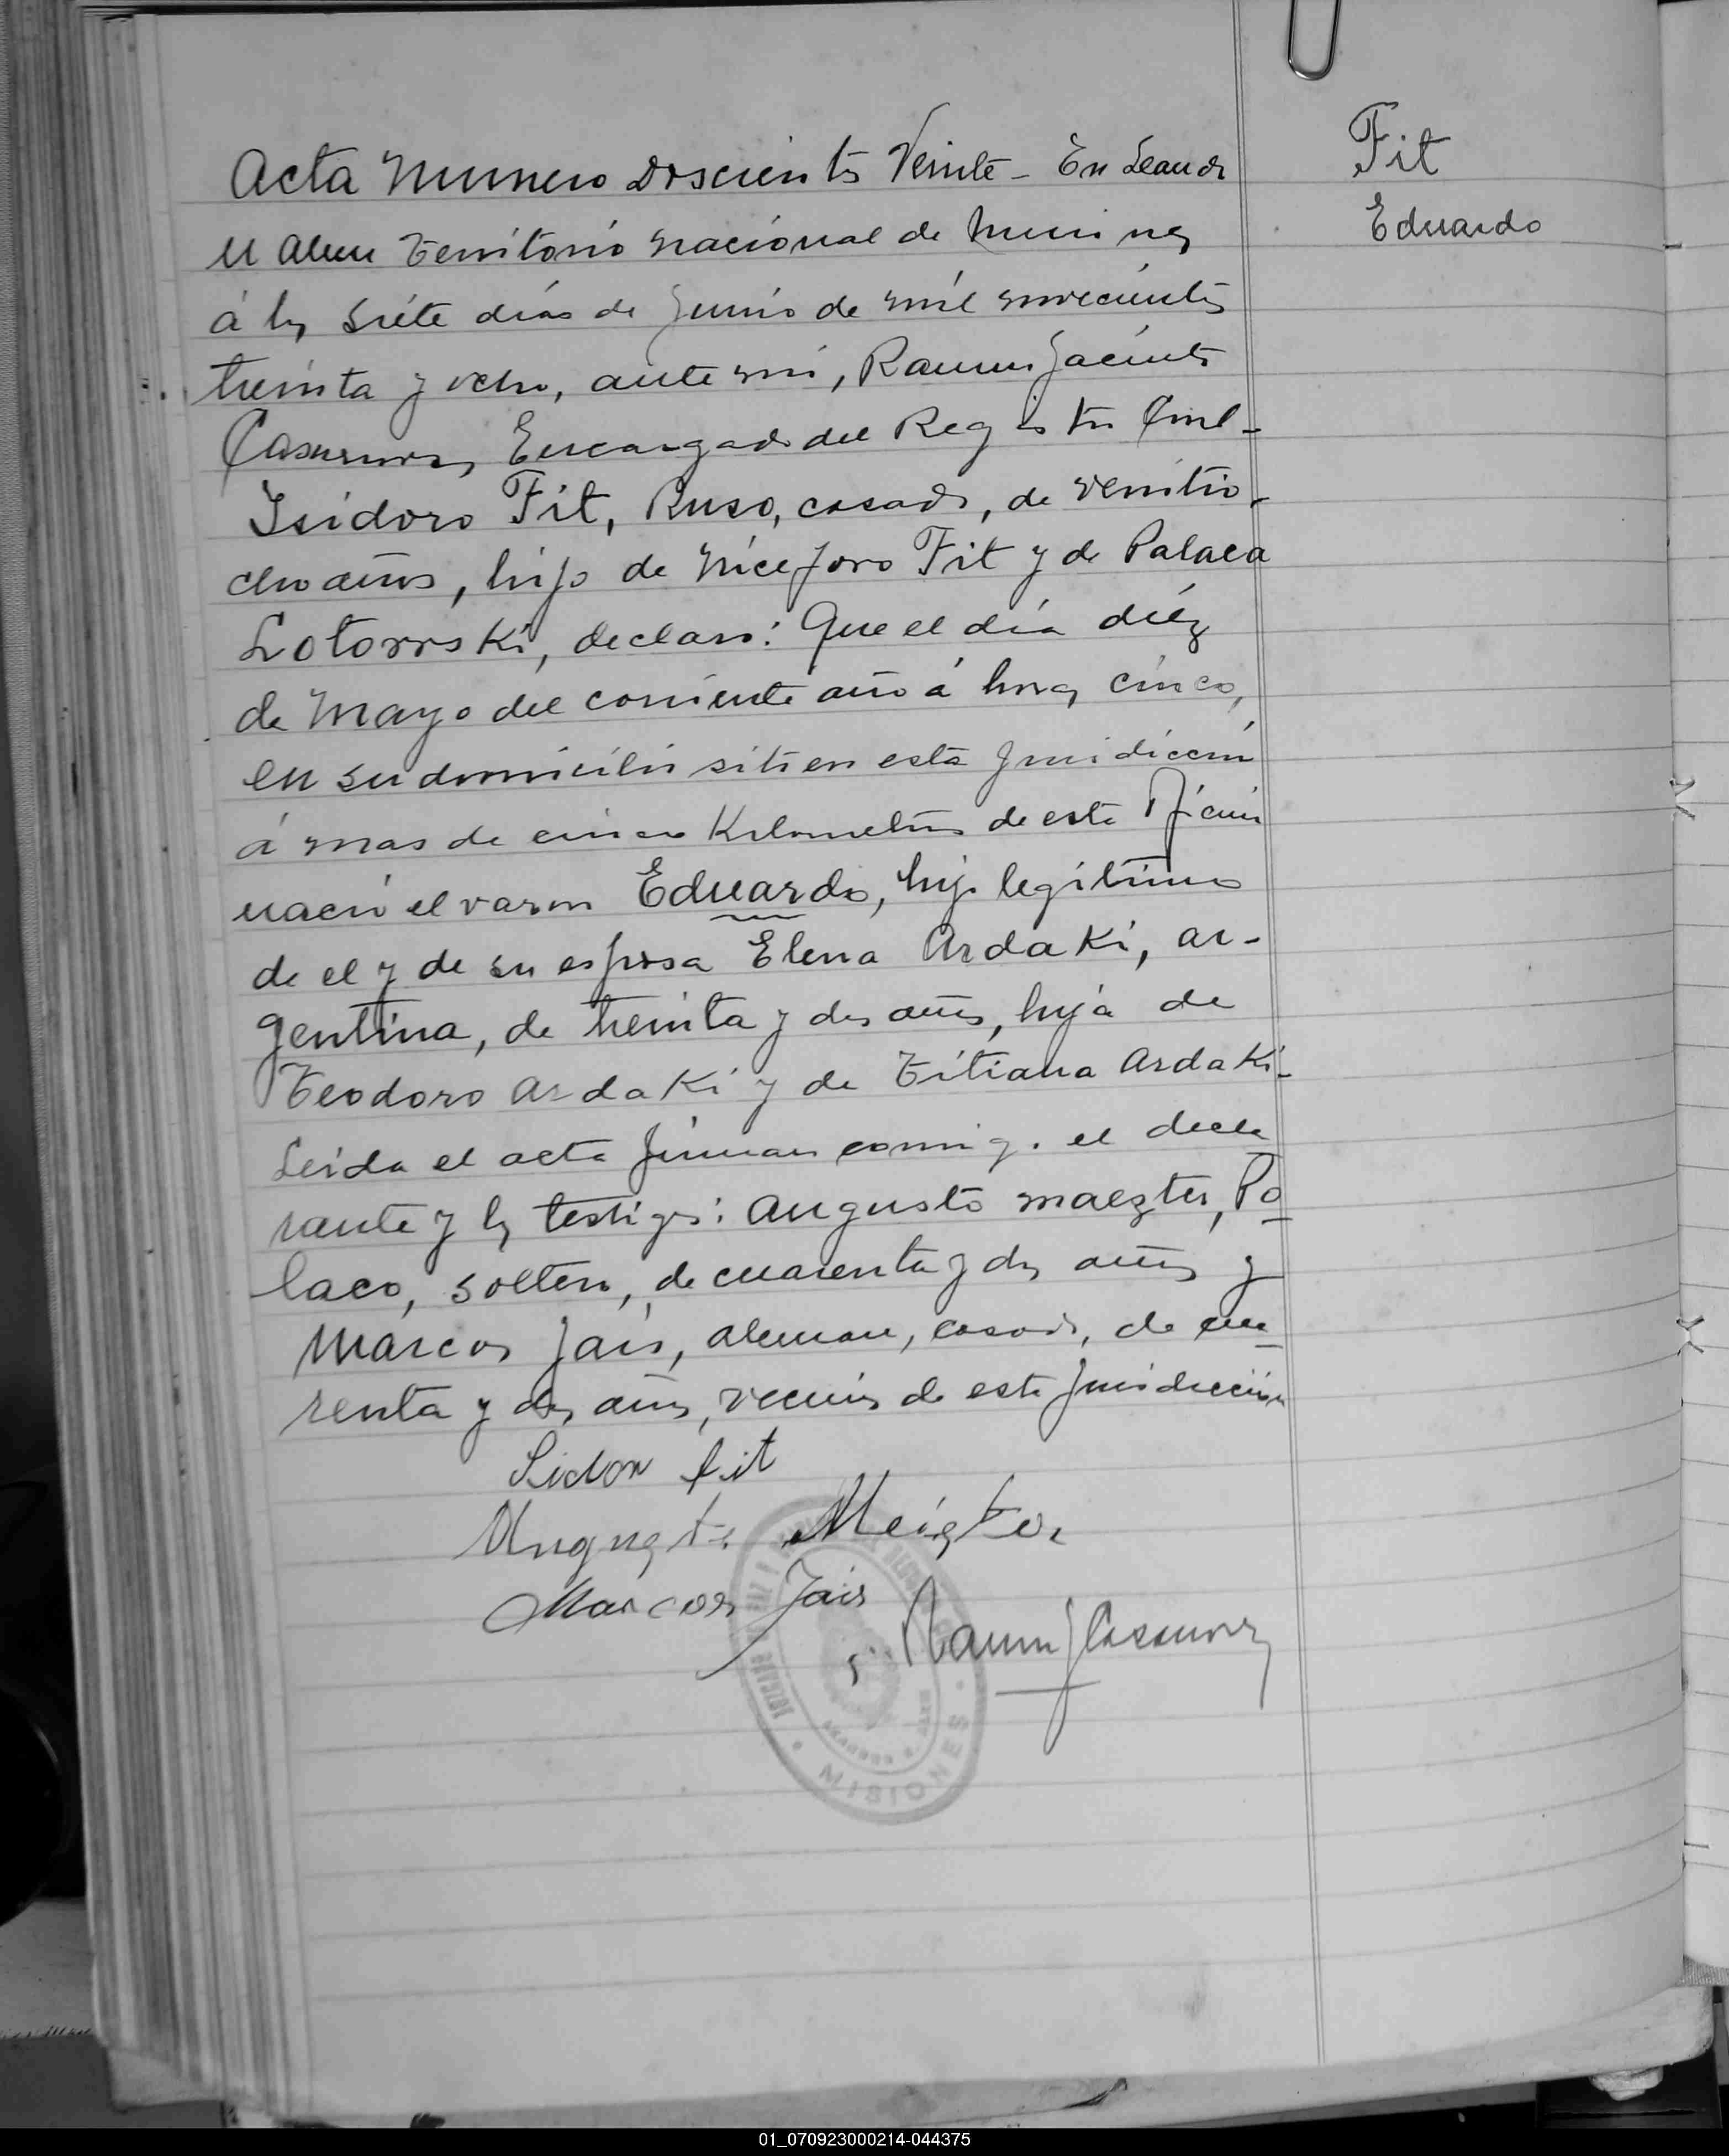 Acta Numero Doscientos Veinte - En Leandro
N Alem Territorio Nacional de Misiones
á los siete dias de Junio de mil novecientos
treinta y ocho, ante mi, Ramon Jacinto
Casanova, Encargado del Registro Civil -
Isidoro Fit, Ruso, casado, de veintio-
cho años, hijo de Niceforo Fit y de Palaea
Lotorrski, declaro: Que el día diéz
de Mayo del corriente año á horas cinco,
en su domicilio sito en esta Jurisdiccion
á mas de cinco Kilometros de esta Oficina
nació el varon Eduardo, hijo legítimo
de el y de su esposa Elena Ardaki, ar-
gentina, de treinta y dos años, hija de
Teodoro Ardaki y de Titiana Ardaki -
Leida el acta firman conmigo el decla
rante y los testigos: Augusto Maezter, Po
laco, soltero, de cuarenta y dos años y
Marcos Jais, aleman, casado, de cua
renta y dos años, vecinos de esta Jurisdiccion
Sidor Fit
August Meigter
Marcos Jais
Ramon J Casanova
MISIONES
Fit
Eduardo
01_070923000214-044375